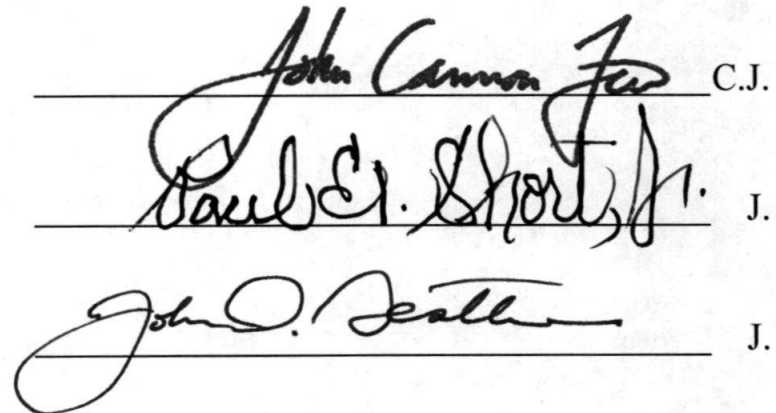 John Cannon Few C.J.
Paul E. Short, Jr. J.
John D. Geathers J.